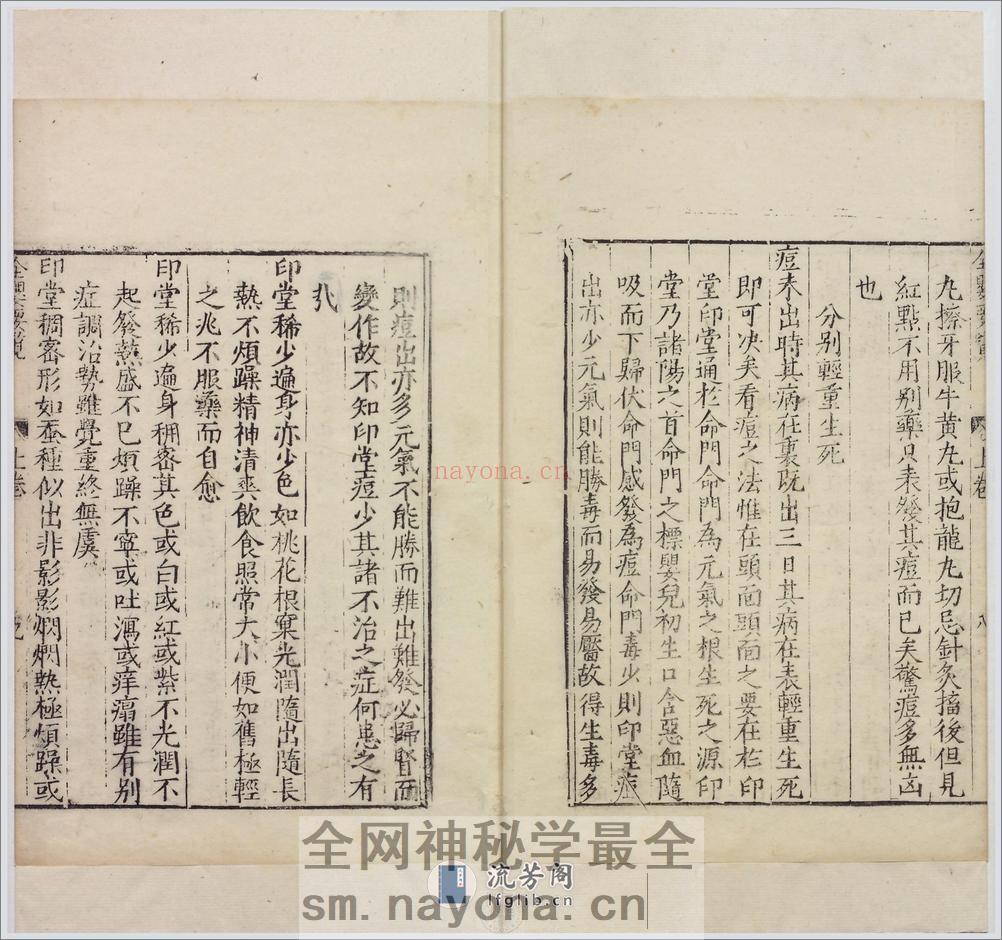 丸擦牙服牛黄丸或抱龍丸切忌針灸搐後但見
紅點不用別藥只表發其痘而已矣驚痘多無凶
也
分別輕重生死
痘未出時其病在裏既出三日其病在表輕重生死
即可决矣看痘之法惟在頭面頭面之要在於印
堂印堂通於命門命門為元氣之根生死之源印
堂乃諸陽之首命門之標嬰兒初生口含惡血隨
吸而下歸伏命門感發為痘命門毒少則印堂痘
出亦少元氣則能勝毒而易發易靨故得生毒多
上卷
八
則痘出亦多元氣不能勝而難出難發必歸腎而
變作故不知印堂痘少其諸不治之症何患之有
印堂稀少遍身亦少色如桃花根窠光潤隨出隨長
熱不煩躁精神清爽飲食照常大小便如舊極輕
之兆不服藥而自愈
印堂稀少遍身稠密其色或白或紅或紫不光潤不
起發熱盛不已煩躁不寧或吐瀉或痒瘡雖有別
症調治勢雖覺重終無虞
上卷
印堂稠密形如蚕種似出非影影燜燜熱極煩躁或
nayona.cn
全网神秘学最全
流芳阁
lfglib.cn
sm.nayona.cn